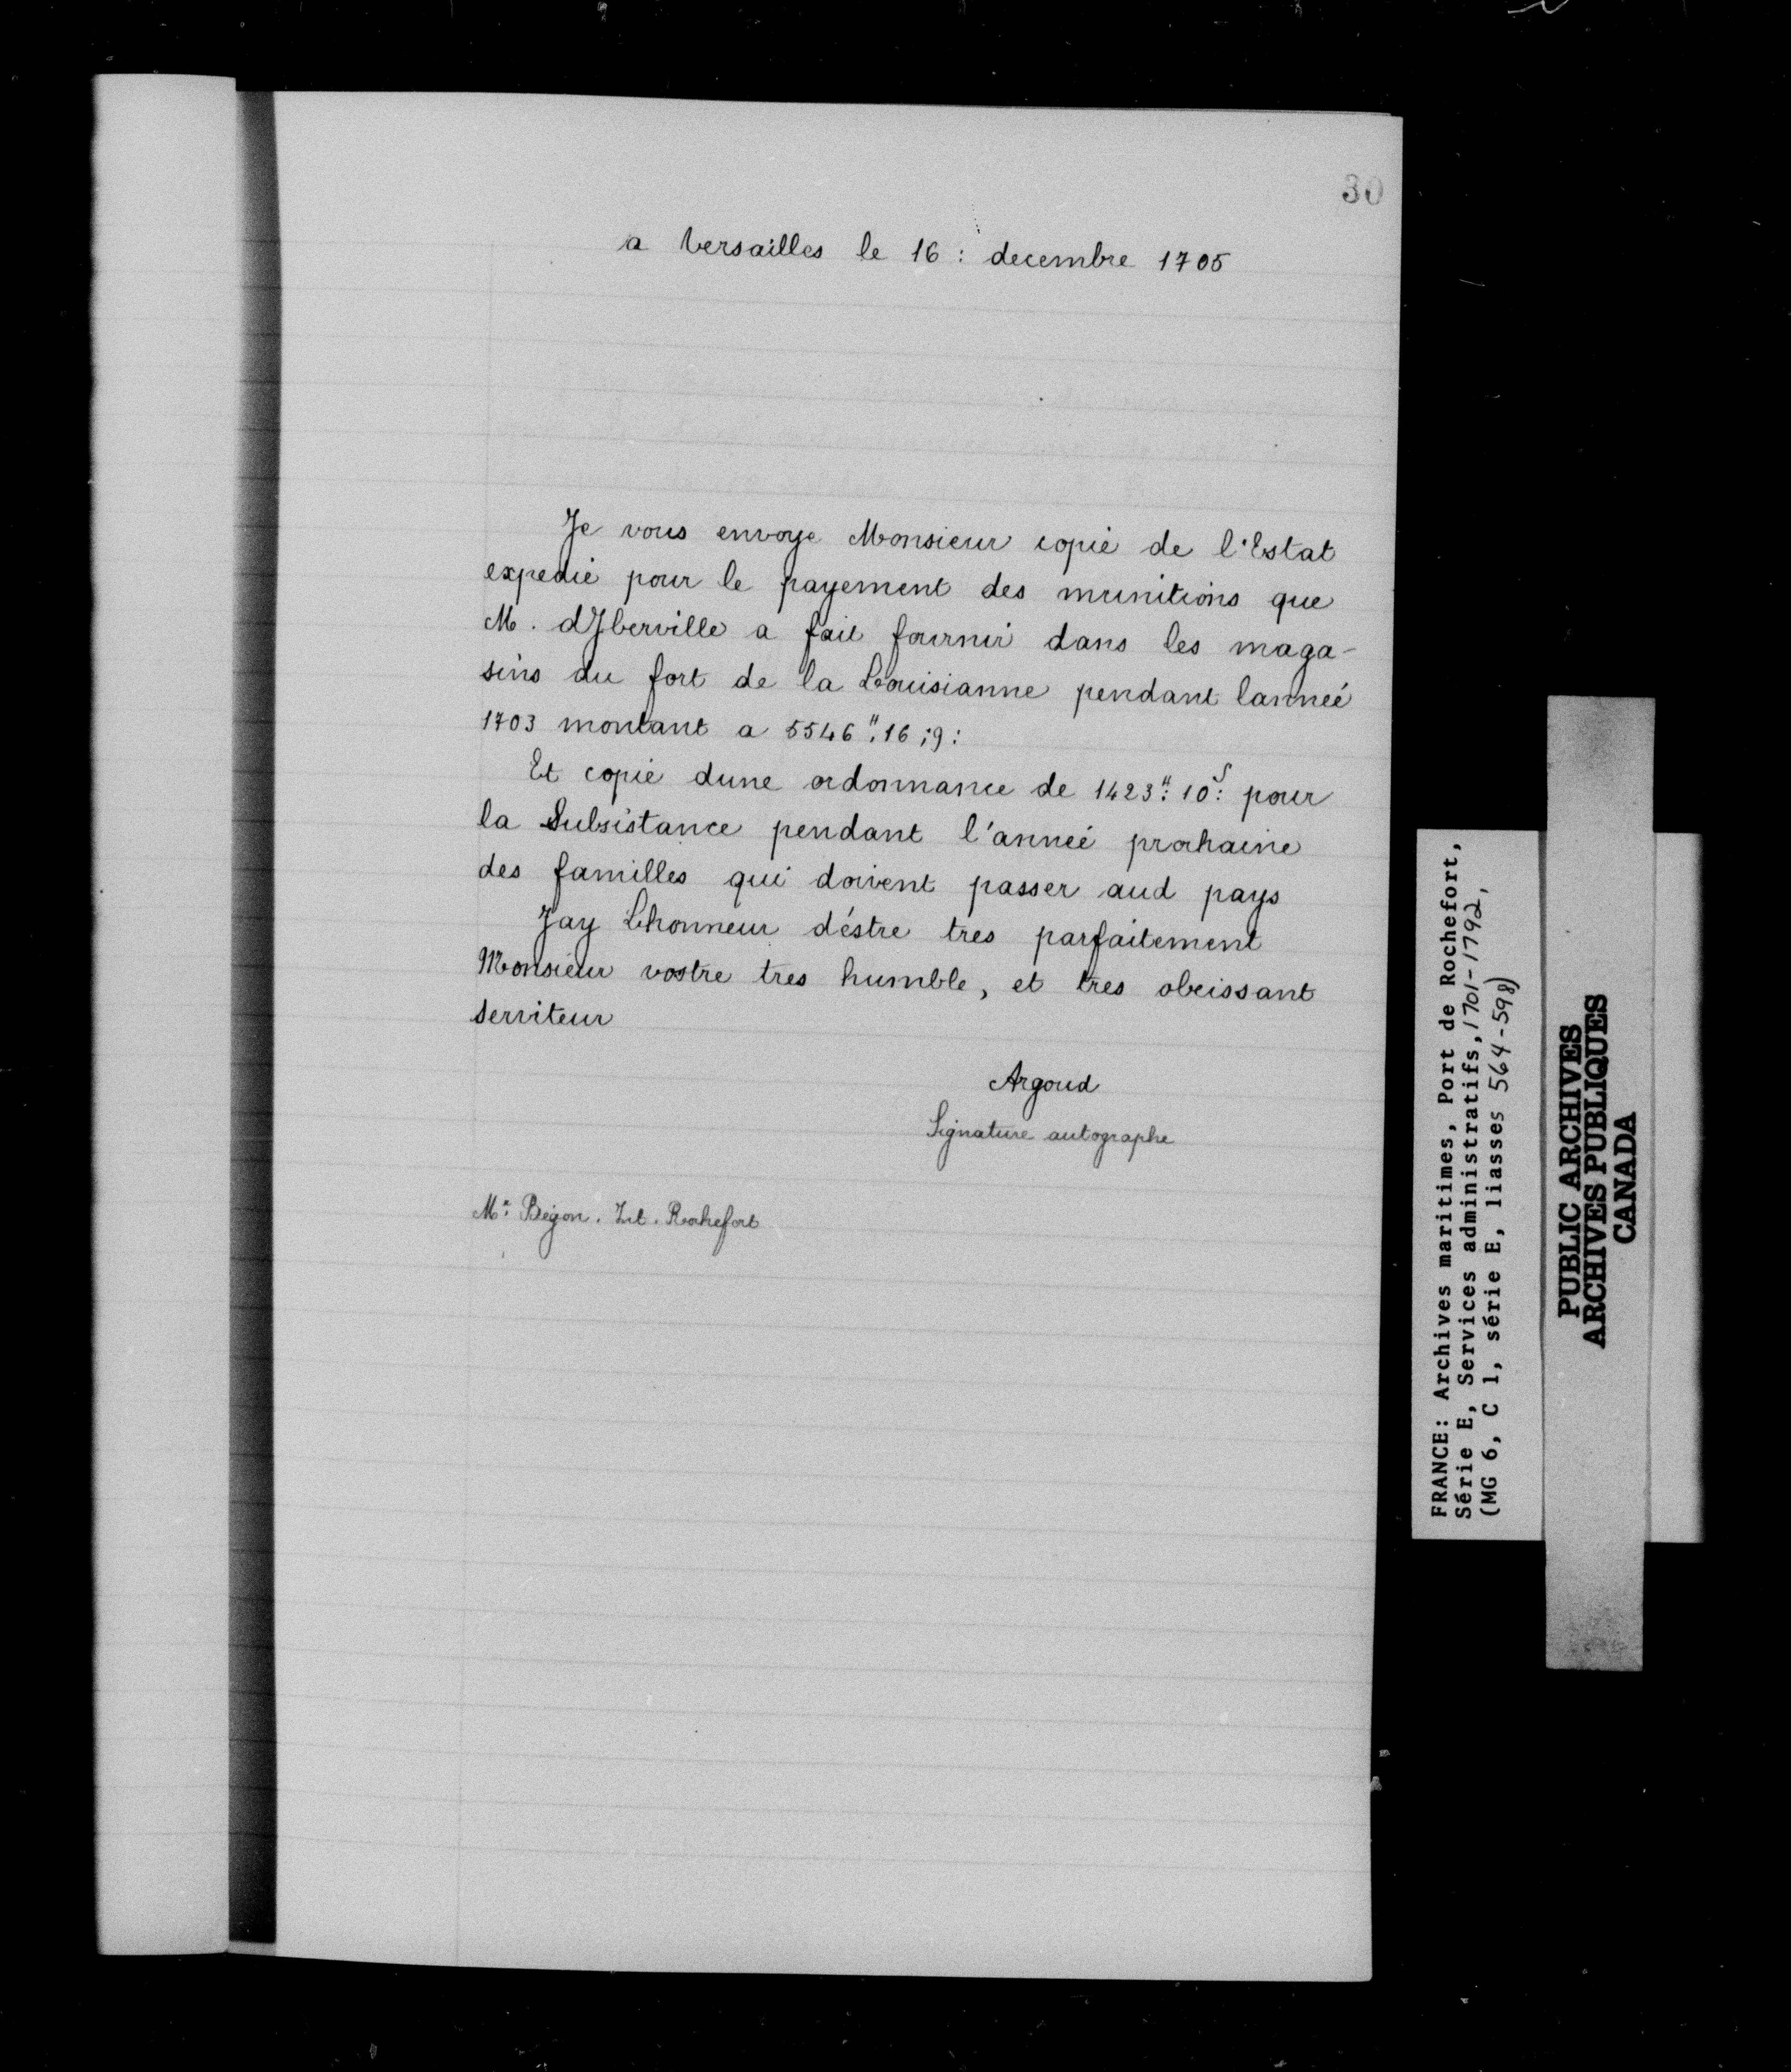 30
a Versailles le 16 : decembre 1705
Je vous envoye Monsieur copie de l'Estat
expedié pour le payement des munitions que
M. dJberville a fait fournir dans les maga-
sins du fort de la Louisianne pendant lanneé
1703 montant a 5546".16;9:
Et copie dune ordonnance de 1423": 10s: pour
la Subsistance pendant l'anneé prochaine
des familles qui doivent passer aud pays
Jay Lhonneur d'éstre tres parfaitement
Monsieur vostre tres humble, et tres obeissant
serviteur
Argoud
Signature autographe
Mr. Begon. Int. Rochefort
FRANCE: Archives maritimes, Port de Rochefort,
Série E, Services administratifs, 1701-1792,
(MG 6, C 1, série E, liasses 564-598)
PUBLIC ARCHIVES
ARCHIVES PUBLIQUES
CANADA